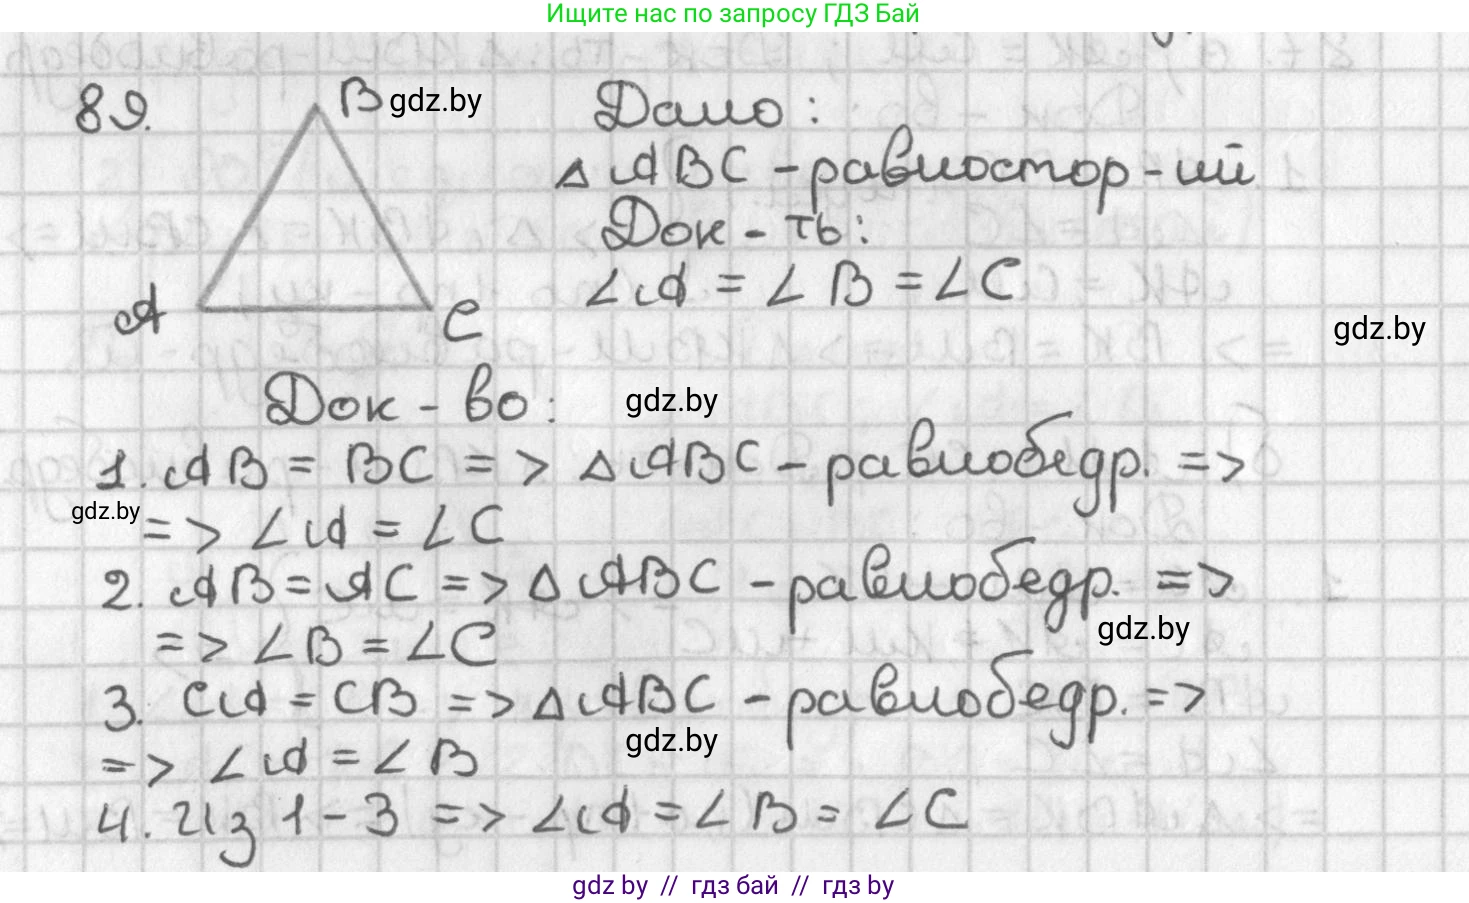 Ищите нас по запросу ГДЗ Бай
89.
B
gdz.by
A
C
Дано:
△ABC - равностор-ий
Док-ть:
∠A = ∠B = ∠C
gdz.by
Док-во:
gdz.by
1. AB = BC => △ABC - равнобедр. =>
gdz.by
=> ∠A = ∠C
2. AB = AC => △ABC - равнобедр. =>
gdz.by
=> ∠B = ∠C
3. CA = CB => △ABC - равнобедр. =>
gdz.by
=> ∠A = ∠B
4. Из 1-3 => ∠A = ∠B = ∠C
gdz by // гдз бай // гдз by